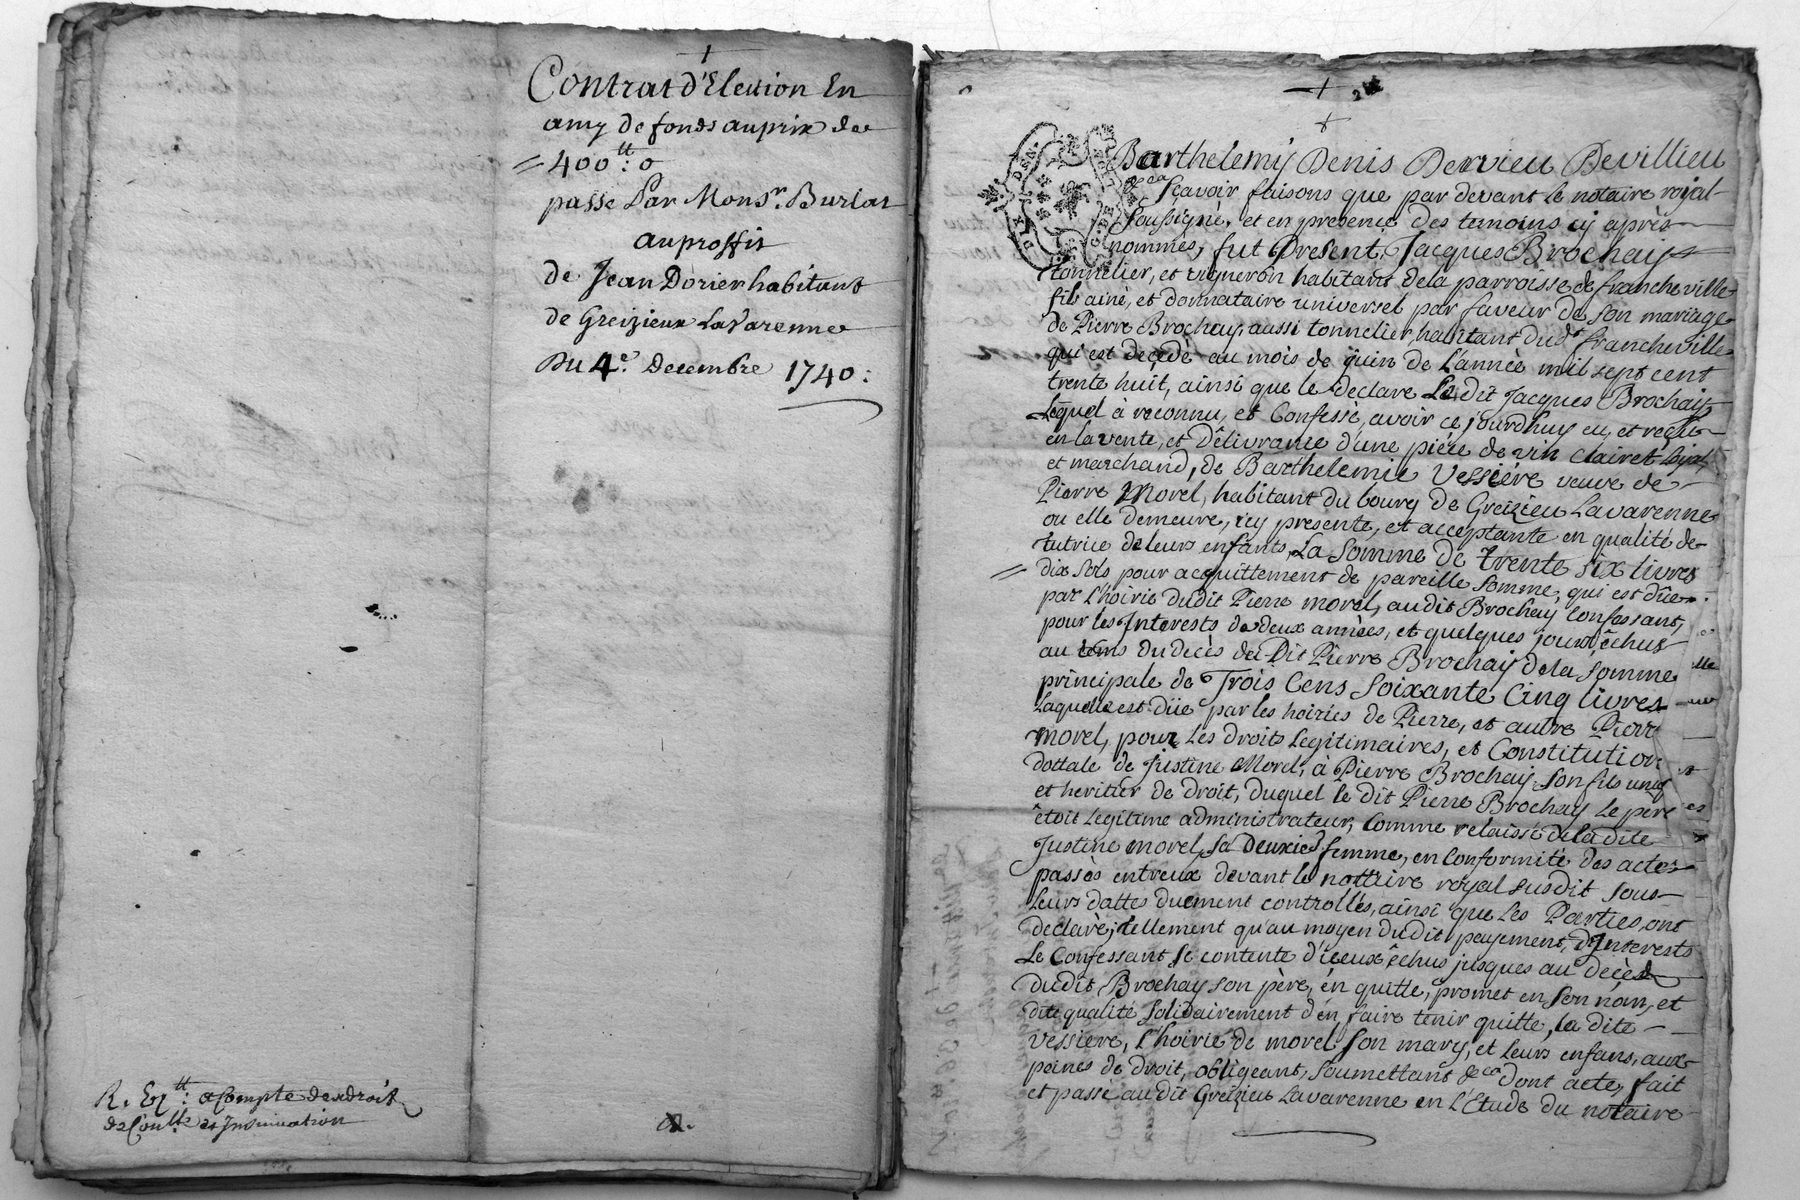 Contrat d'Election En
amy de fonds au prix de
400tt: o
passé Par Monsr. Burlat
au proffit
de Jean Dorier habitant
de Greizieux La Varenne
Du 4e. Decembre 1740:
a Compte des droits
et Insinuation
Barthelemy Denis Dervieu Devillieu
&ca sçavoir faisons que par devant le notaire roial
soussigné, et en presence des temoins cy après
nommés, fut Present Jacques Brochay
tonnelier, et vigneron habitant de la parroisse de francheville
fils ainé, et donnataire universel par faveur de son mariage
de Pierre Brochay, aussi tonnelier, habitant dudt francheville
qui est decedé au mois de juin de L'année mil sept cent
trente huit, ainsi que le declare Le dit Jacques Brochay
Lequel à reconnu, et Confessé, avoir ce jourdhuy eu, et reçu
en la vente, et délivrance d'une piéce de vin Clairet Loyal
et marchand, de Barthelemie Vessiére veuve de
Pierre Morel, habitant du bourg de Greizieu Lavarenne
ou elle demeure, icy presente, et acceptante en qualité de
tutrice de leurs enfants, La Somme de trente six livres
dix sols pour acquittement de pareille somme, qui est dûe
par l'hoirie dudit Pierre morel, audit Brochay Confessant,
pour les Interests de deux années, et quelques jours échus
au tems du décès du Dit Pierre Brochay de la somme
principale de Trois Cens Soixante Cinq livres
Laquelle est dûe par les hoiries de Pierre, et autre Pierre
morel, pour les droits Legitimaires, et Constitution
dottale de Justine Morel, à Pierre Brochay son fils
et heritier de droit, duquel le dit Pierre Brochay Le pere
êtoit Legitime administrateur, Comme relaissé de la dite
Justine morel, sa deuxie femme, en Conformité des actes
passés entreux devant le nottaire royal susdit sous
Leurs dattes duement controllés, ainsi que Les Parties, ont
declaré; tellement qu'au moyen dudit payement, d'Interests
Le Confessant se contente d'iceux échus jusques au décès
dudit Brochay son père, én quitte, promet en son nom, et
dite qualité solidairement d'én faire tenir quitte, la dite
vessiere, L'hoirie de morel son mary, et Leurs enfans, aux
peines de droit, obligeant, soumettant &ca dont acte, fait
et passé audit Greizieu Lavarenne en L'Etude du notaire